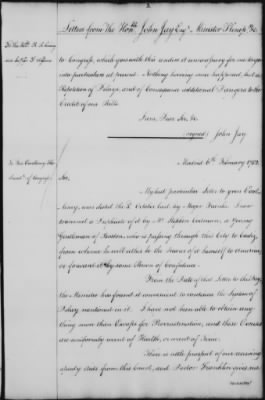 2
Letters from The Honble John Jay Esqr. Minister Plenipo. &c
To the Hble. R. R. Livingston
to Congress, which goes with this renders it unnecessary for me to go
into particulars at present. Nothing having since happened, but a
Repetition of Delays, and of Consequence additional Dangers to the
Credit of our Bills.
I am, Dear Sir, &c.
(signed) John Jay
Madrid 6th February 1782.
To His Excellency The
Presidt. of Congress
Sir,
My last particular Letter to your Excel-
lency, was dated the 3 October last by Major Franks. I now
transmit a Duplicate of it by Mr. Stephen Codman, a young
Gentleman of Boston, who is passing through this City to Cadiz,
from whence he will either be the Bearer of it himself to America,
or forward it by some Person of Confidence.
From the Date of that Letter to this Day,
the Minister has found it convenient to continue the System of
Delay mentioned in it. I have not been able to obtain any
thing more than Excuses for Procrastination, and these Excuses
are uniformly want of Health, or want of Time.
There is little prospect of our receiving
speedy aids from this Court, and Doctor Franklin gives me